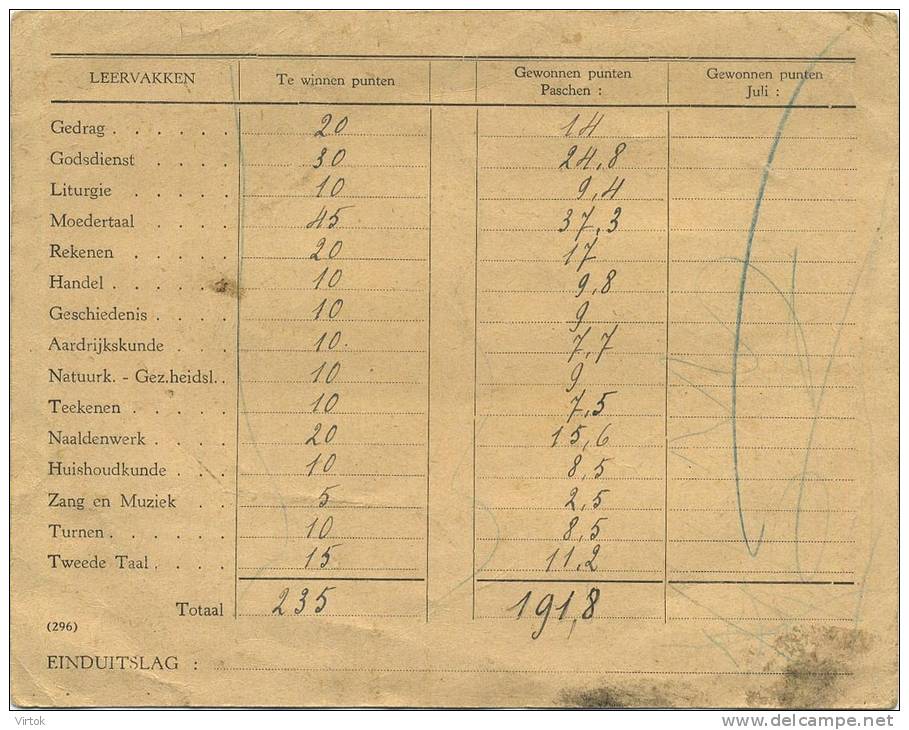 LEERVAKKEN Te winnen punten Gewonnen punten Paschen : Gewonnen punten Juli :
Gedrag . . . . . . 20 14
Godsdient . . . . 30 24,8
Liturgie . . . . . 10 9,4
Moedertaal . . . . 45 37,3
Rekenen . . . . . 20 17
Handel . . . . . . 10 9,8
Geschiedenis . . . . 10 9
Aardrijkskunde . . . 10. 7,7
Natuurk. - Gez.heidsl. . 10 9
Teekenen . . . . . 10 7,5
Naaldenwerk . . . . 20 15,6
Huishoudkunde . . . 10 8,5
Zang en Muziek . . 5 2,5
Turnen . . . . . . 10 8,5
Tweede Taal . . . . 15 11,2
Totaal 235 191,8
(296)
EINDUITSLAG :
Virtok
www.delcampe.net